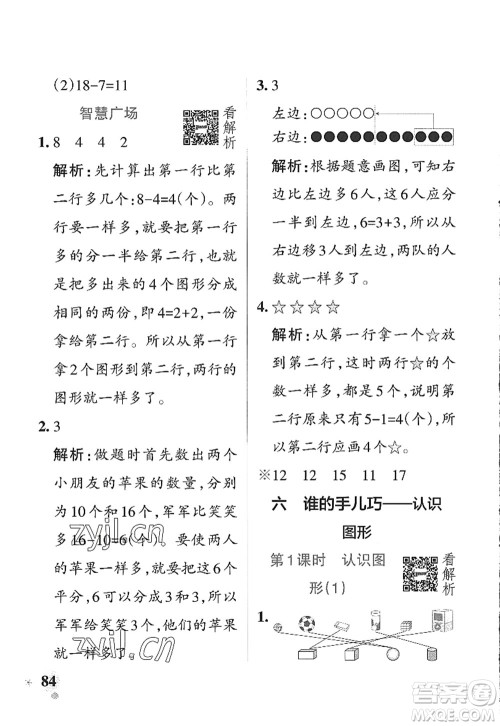 (2)18-7=11
智慧广场
看解析
1. 8 4 4 2
解析：先计算出第一行比第
二行多几个：8-4=4(个)，两
行要一样多，就需要把多
的分一半给第二行，也就
是把多出来的4个图形分成
相同的两份，即4=2+2，第一行
拿2个图形给第二行，两行
图形就一样多了。
2. 3
解析：做题时首先数出两个
小朋友的苹果的数量，分
别是16个和10个，军军比笑笑
多16-10=6(个)，要使两人
的苹果一样多，需要把这6个
平分，6可以分成3和3，所以
军军给笑笑3个，他们的苹
果就一样多了。
84
3. 3
左边：○○○○○
右边：●●●●●●●●●●●
解析：根据题意画图，可知右
边比左边多6人，这6人应分
一半给左边，6=3+3，所以右边
应移3人到左边，两队的人
数就一样多了。
4. ☆☆☆☆
解析：从第一行拿一个☆给
第二行，这时两行的☆同
样多，都是5个，说明第
二行原来只有5-1=4(个)，
所以第二行应画4个☆。
※12 12 15 11 17
六 谁的手儿巧——认识
图形
第1课时 认识图
形(1)
看解析
1.
zyjl.cn
zyjl.cn
答案圈
MXQE.COM